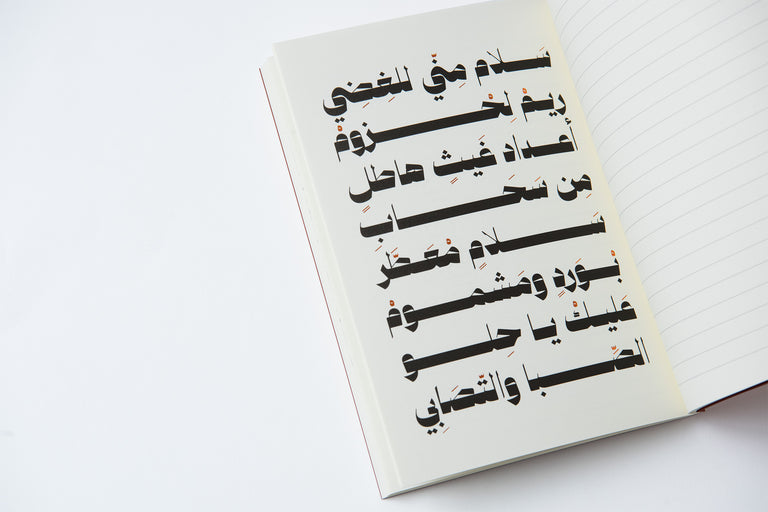 سَلام مِنّي للغِضِي
ريمْ لِحْزومْ
أعداد غَيثٍ هاطلٍ
مِن سَحَابَ
سَلامٍ مْعَطَّرَ
بْوَردٍ ومَشمومْ
عَليكْ يا حِلو
الصِّبا والتّصَابي